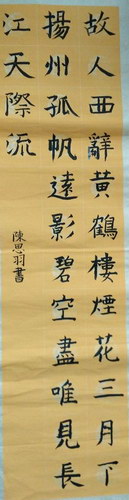 故人西辭黃鶴樓煙花三月下
揚州孤帆遠影碧空盡唯見長
江天際流
陳思羽書